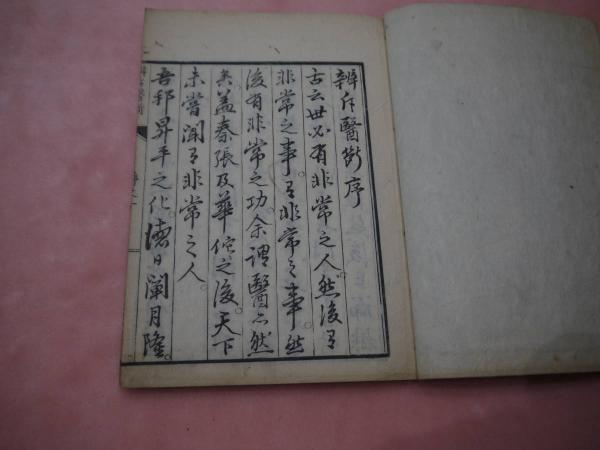 辨斥醫斷序
古云世必有非常之人然後有
非常之事。有非常之事。然
後有非常之功。余謂醫亦然
矣蓋秦張及華佗之後。天下
未嘗聞有非常之人。
吾邦昇平之化。德日闡月隆。